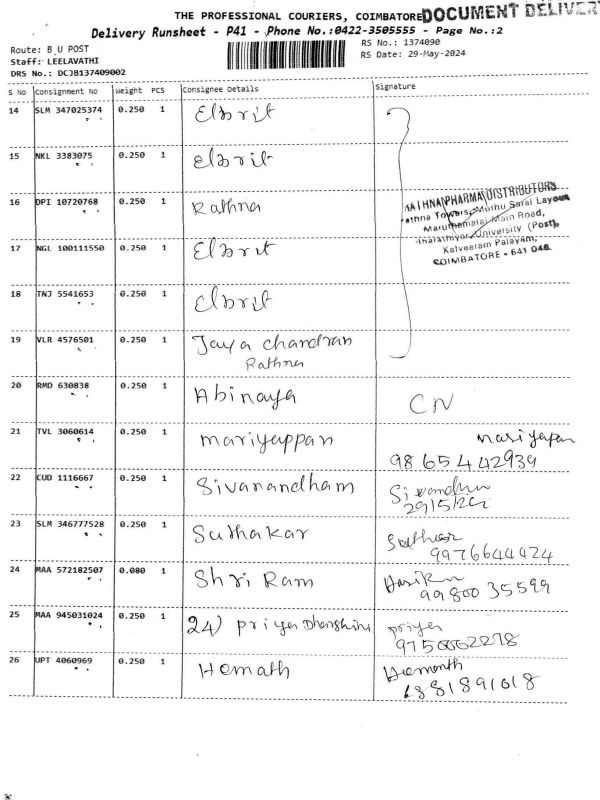 THE PROFESSIONAL COURIERS, COIMBATORE
DOCUMENT DELIVERY
Delivery Runsheet - P41 - Phone No.:0422-3505555 - Page No.:2
Route: B U POST
Staff: LEELAVATHI
DRS No.: DCJB137409002
RS No.: 1374090
RS Date: 29-May-2024
S No Consignment No Weight PCS Consignee Details Signature
14 SLM 347025374 0.250 1 Elbrit
15 NKL 3383075 0.250 1 elbrit
16 DPI 10720768 0.250 1 Rathna
RATHNA PHARMA DISTRIBUTORS
Rathna Towers, Muthu Sarai Layout
Maruthamalai Main Road,
Bharathiyar University (Post),
Kalveeram Palayam,
COIMBATORE - 641 046.
17 NGL 100111550 0.250 1 Elbrit
18 TNJ 5541653 0.250 1 elbrit
19 VLR 4576501 0.250 1 Jaya chandran
Rathna
20 RMD 630838 0.250 1 Abinaya CN
21 TVL 3060614 0.250 1 mariyappan mariyapan
98 65442939
22 CUD 1116667 0.250 1 Sivanandham
29/5/24
23 SLM 346777528 0.250 1 Suthakar
9976644424
24 MAA 572182507 0.080 1 Shri Ram
99800 35599
25 MAA 945031024 0.250 1 24) priya Dharshini priya
26 UPT 4060969 0.250 1 Hemath Hemanth
6381891018